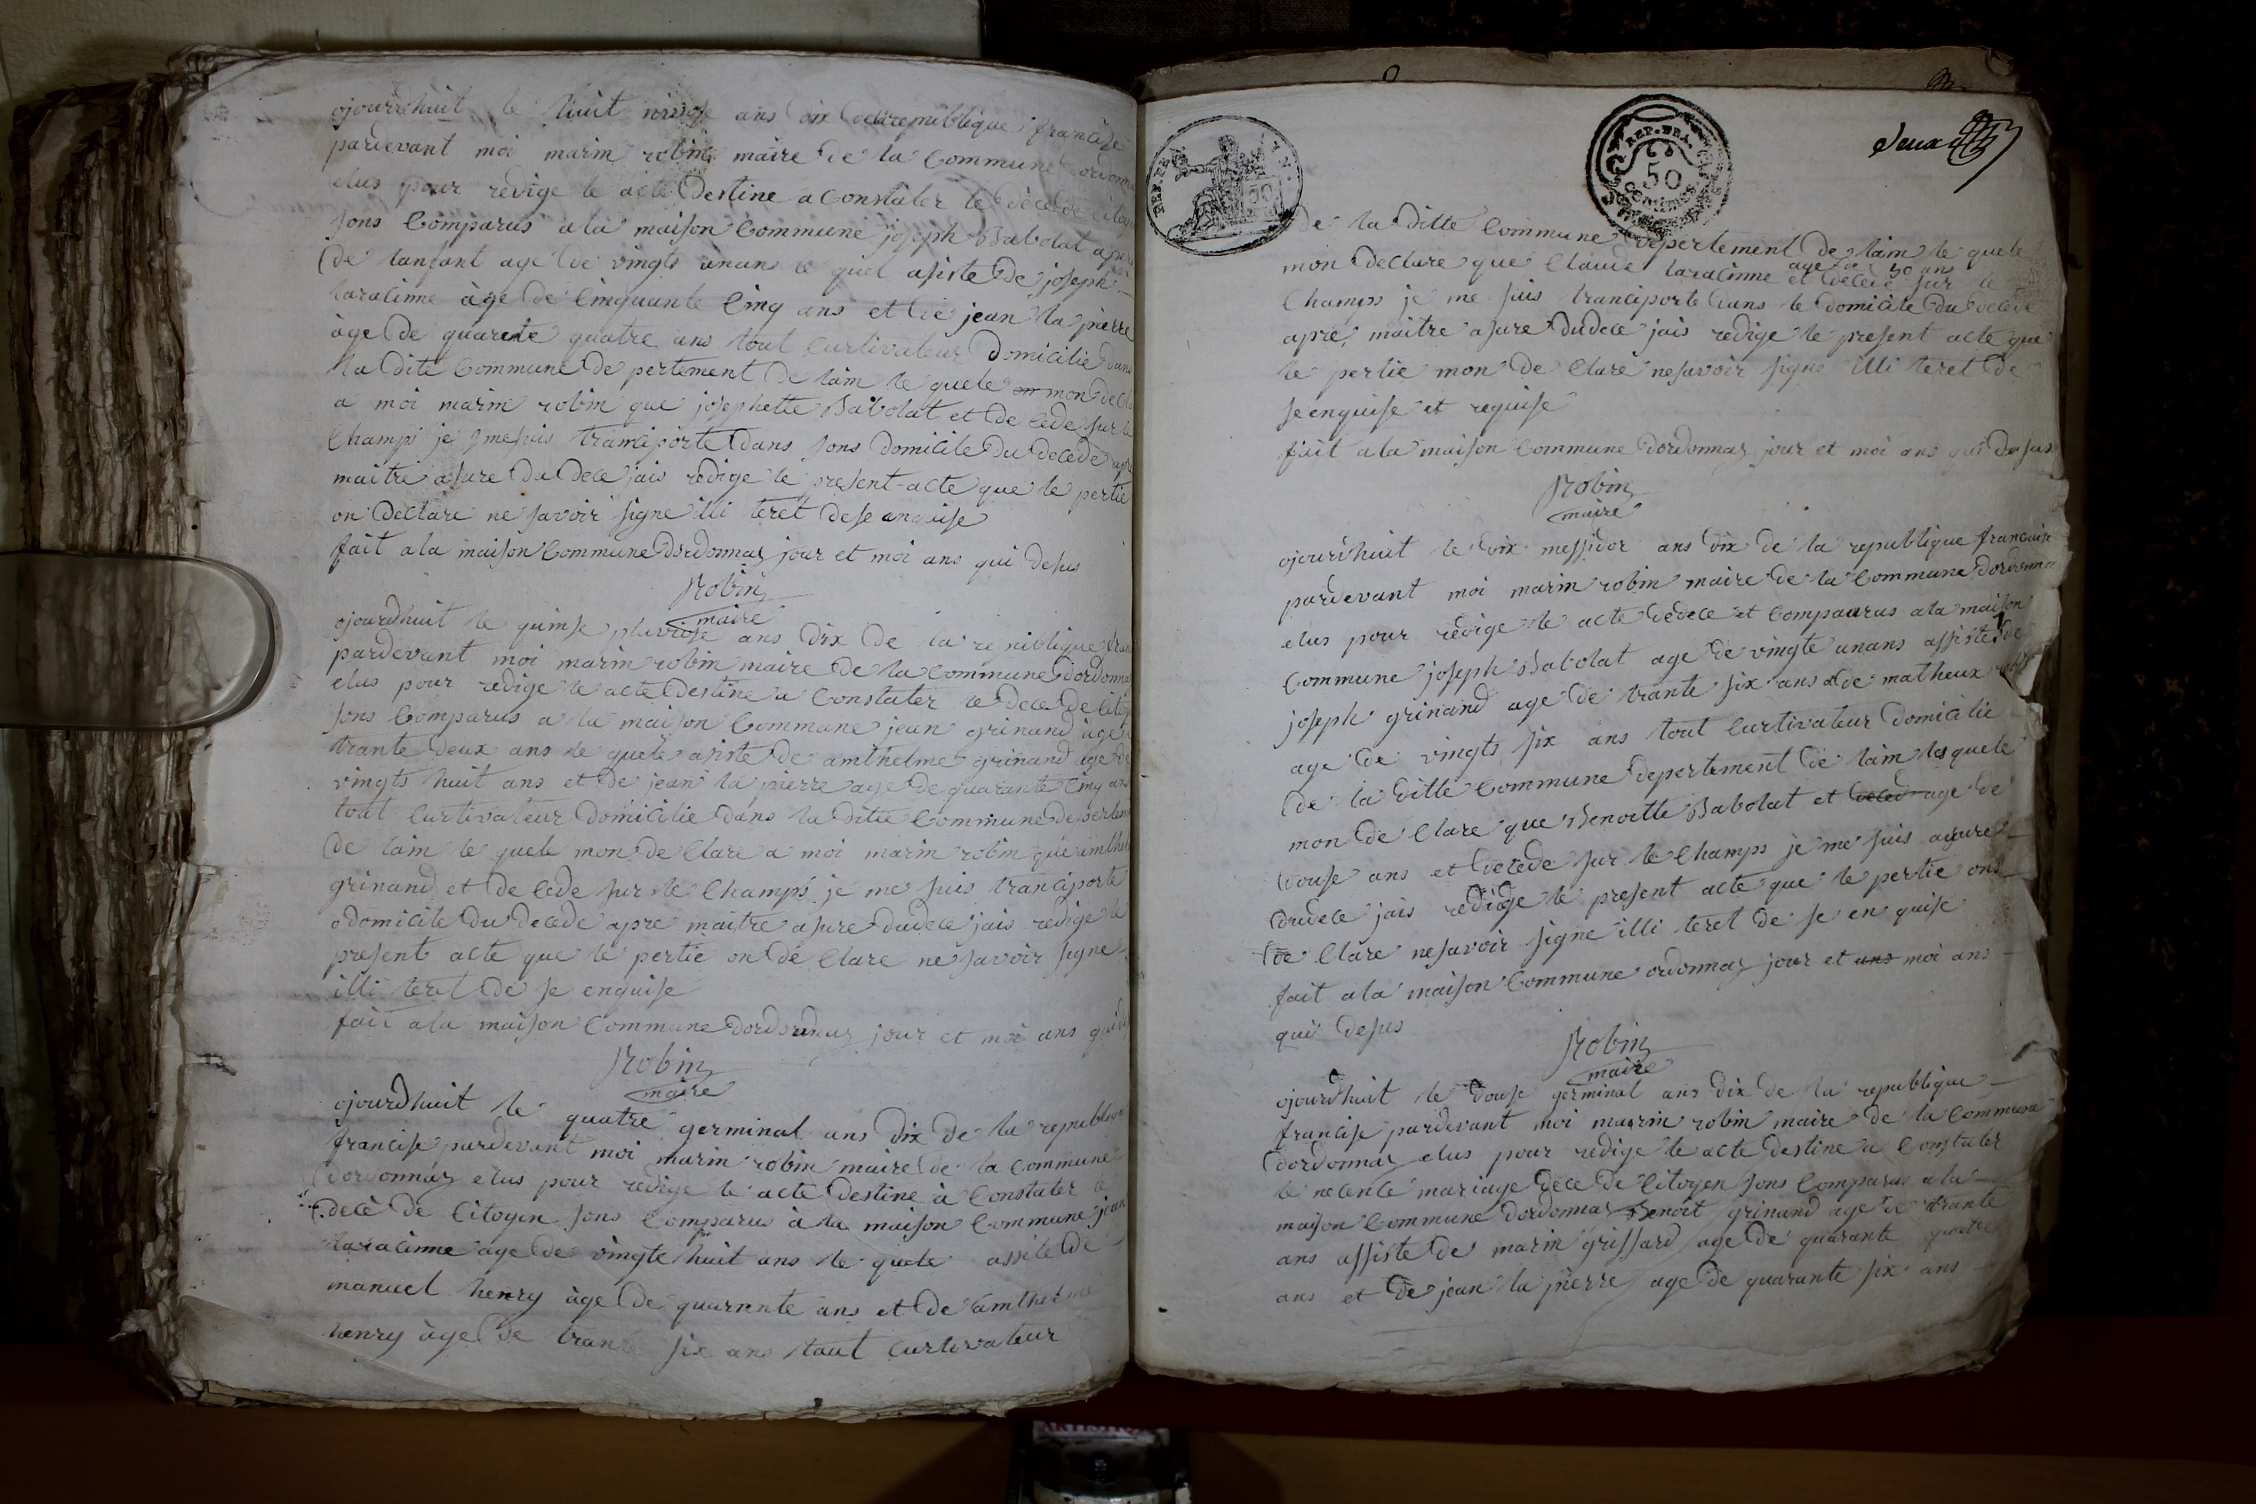 ojourdhuit le huit nivose ans dix de la republique francise
pardevant moi marin robin maire de la Commune dordonna
elus pour redige le acte Destine a Constater le dèce de Citoy
sons Comparus a la maison Commune joseph Babolat
de lanfant age de vingts unans le quel asiste de joseph
taralinne àge de Cinquante Cinq ans et de jean la pierre
àge de quarente quatre ans tout Curtivateur Domicilie dans
la dite Commune de pertement De lain le quele mon de Cla
a moi marin robin que josephette Babolat et de Cede sur le
Champs je me suis tranciporte Dans sons Domicile Du decede apre
maitre asure Du Dece jais redige le present acte que le pertie
on Declare ne savoir signe illi teret de se anquise
fait a la maison Commune Dordonnaz jour et moi ans qui desus
Robin
maire
ojourdhuit le quinse pluviose ans dix De la republique fran
pardevant moi marin robin maire De la Commune Dordonna
elus pour redige le acte Destine a Constater le dece De Citoy
sons Comparus a la maison Commune jean grinand age
trante Deux ans le quele asiste de amthelme grinand age de
vingts huit ans et De jean la pierre age De quarante Cinq ans
tout Curtivateur Domicilie Dans la Dite Commune De pertem
De lain le quele mon de Clare a moi marin robin que amthel
grinand et De Cede sur le Champs je me suis tranciporte
o domicile Du Decede apre maitre asure du dece jais redige le
present acte que le pertie on De Clare ne savoir signe
illi teret De se enquise
fait a la maison Commune Dordonnaz jour et moi ans qui
Robin
maire
ojourdhuit le quatre germinal ans dix de la republique
francise pardevant moi marin robin maire de la Commune
Dordonnaz elus pour redige le acte Destine à Constater le
decè De Citoyen sons Comparus à la maison Commune jean
taralinne age De vingte huit ans le quele assite De
manuel henry àge De quarente ans et De amthelme
henry àge De trante six ans tout Curtivateur
REP. FRA.
50
CENTIMES
Deux
De la Ditte Commune Depertement De lain le quele
mon Declare que Claude taralinne age de 50 ans et decede sur le
Champs je me suis tranciporte Dans le Domicile Du decede
apre maitre asure Du dece jais redige le present acte que
le pertie mon De Clare ne savoir signe illi teret De
se enquise et requise
fait a la maison Commune Dordonnaz jour et moi ans qui Desus
Robin
maire
ojourdhuit le dix messidor ans dix de la republique francaise
pardevant moi marin robin maire De la Commune Dordonna
elus pour redige le acte dedece et Compaurus a la maison
Commune joseph Babolat age de vingte unans assiste de
joseph grinand age de trante six ans de matheux
age De vingts six ans tout Curtivateur domicilie
De la Ditte Commune Depertement De lain lesquele
mon de Clare que Benoitte Babolat et deced age De
Douse ans et decede sur le Champs je me suis asure
Du dece jais redige le present acte que le pertie ons
De Clare ne savoir signe illi teret De se en quise
fait a la maison Commune ordonnaz jour et ans moi ans
qui Desus
Robin
maire
ojourdhuit le Douse germinal ans dix de la republique
francise pardevant moi marin robin maire de la Commune
Dordonnaz elus pour redige le acte destine a Constater
le necence mariage dece de Citoyen sons Comparus a la
maison Commune Dordonnaz Benoit grinand age de trante
ans assiste De marin grissard age De quarante quatre
ans et De jean la pierre age De quarante six ans